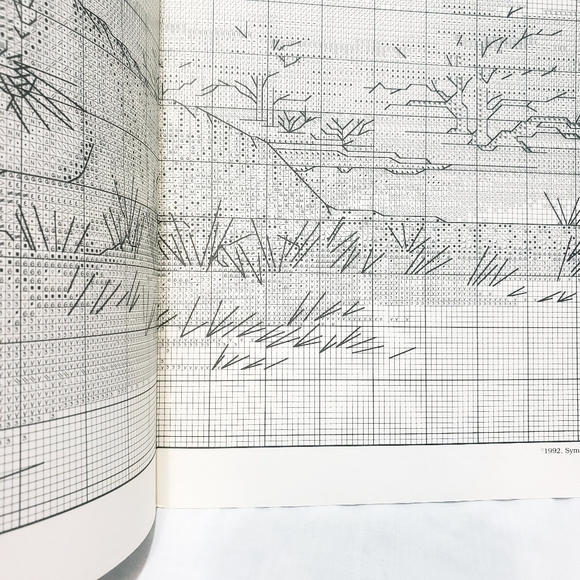 ©1992, Sym